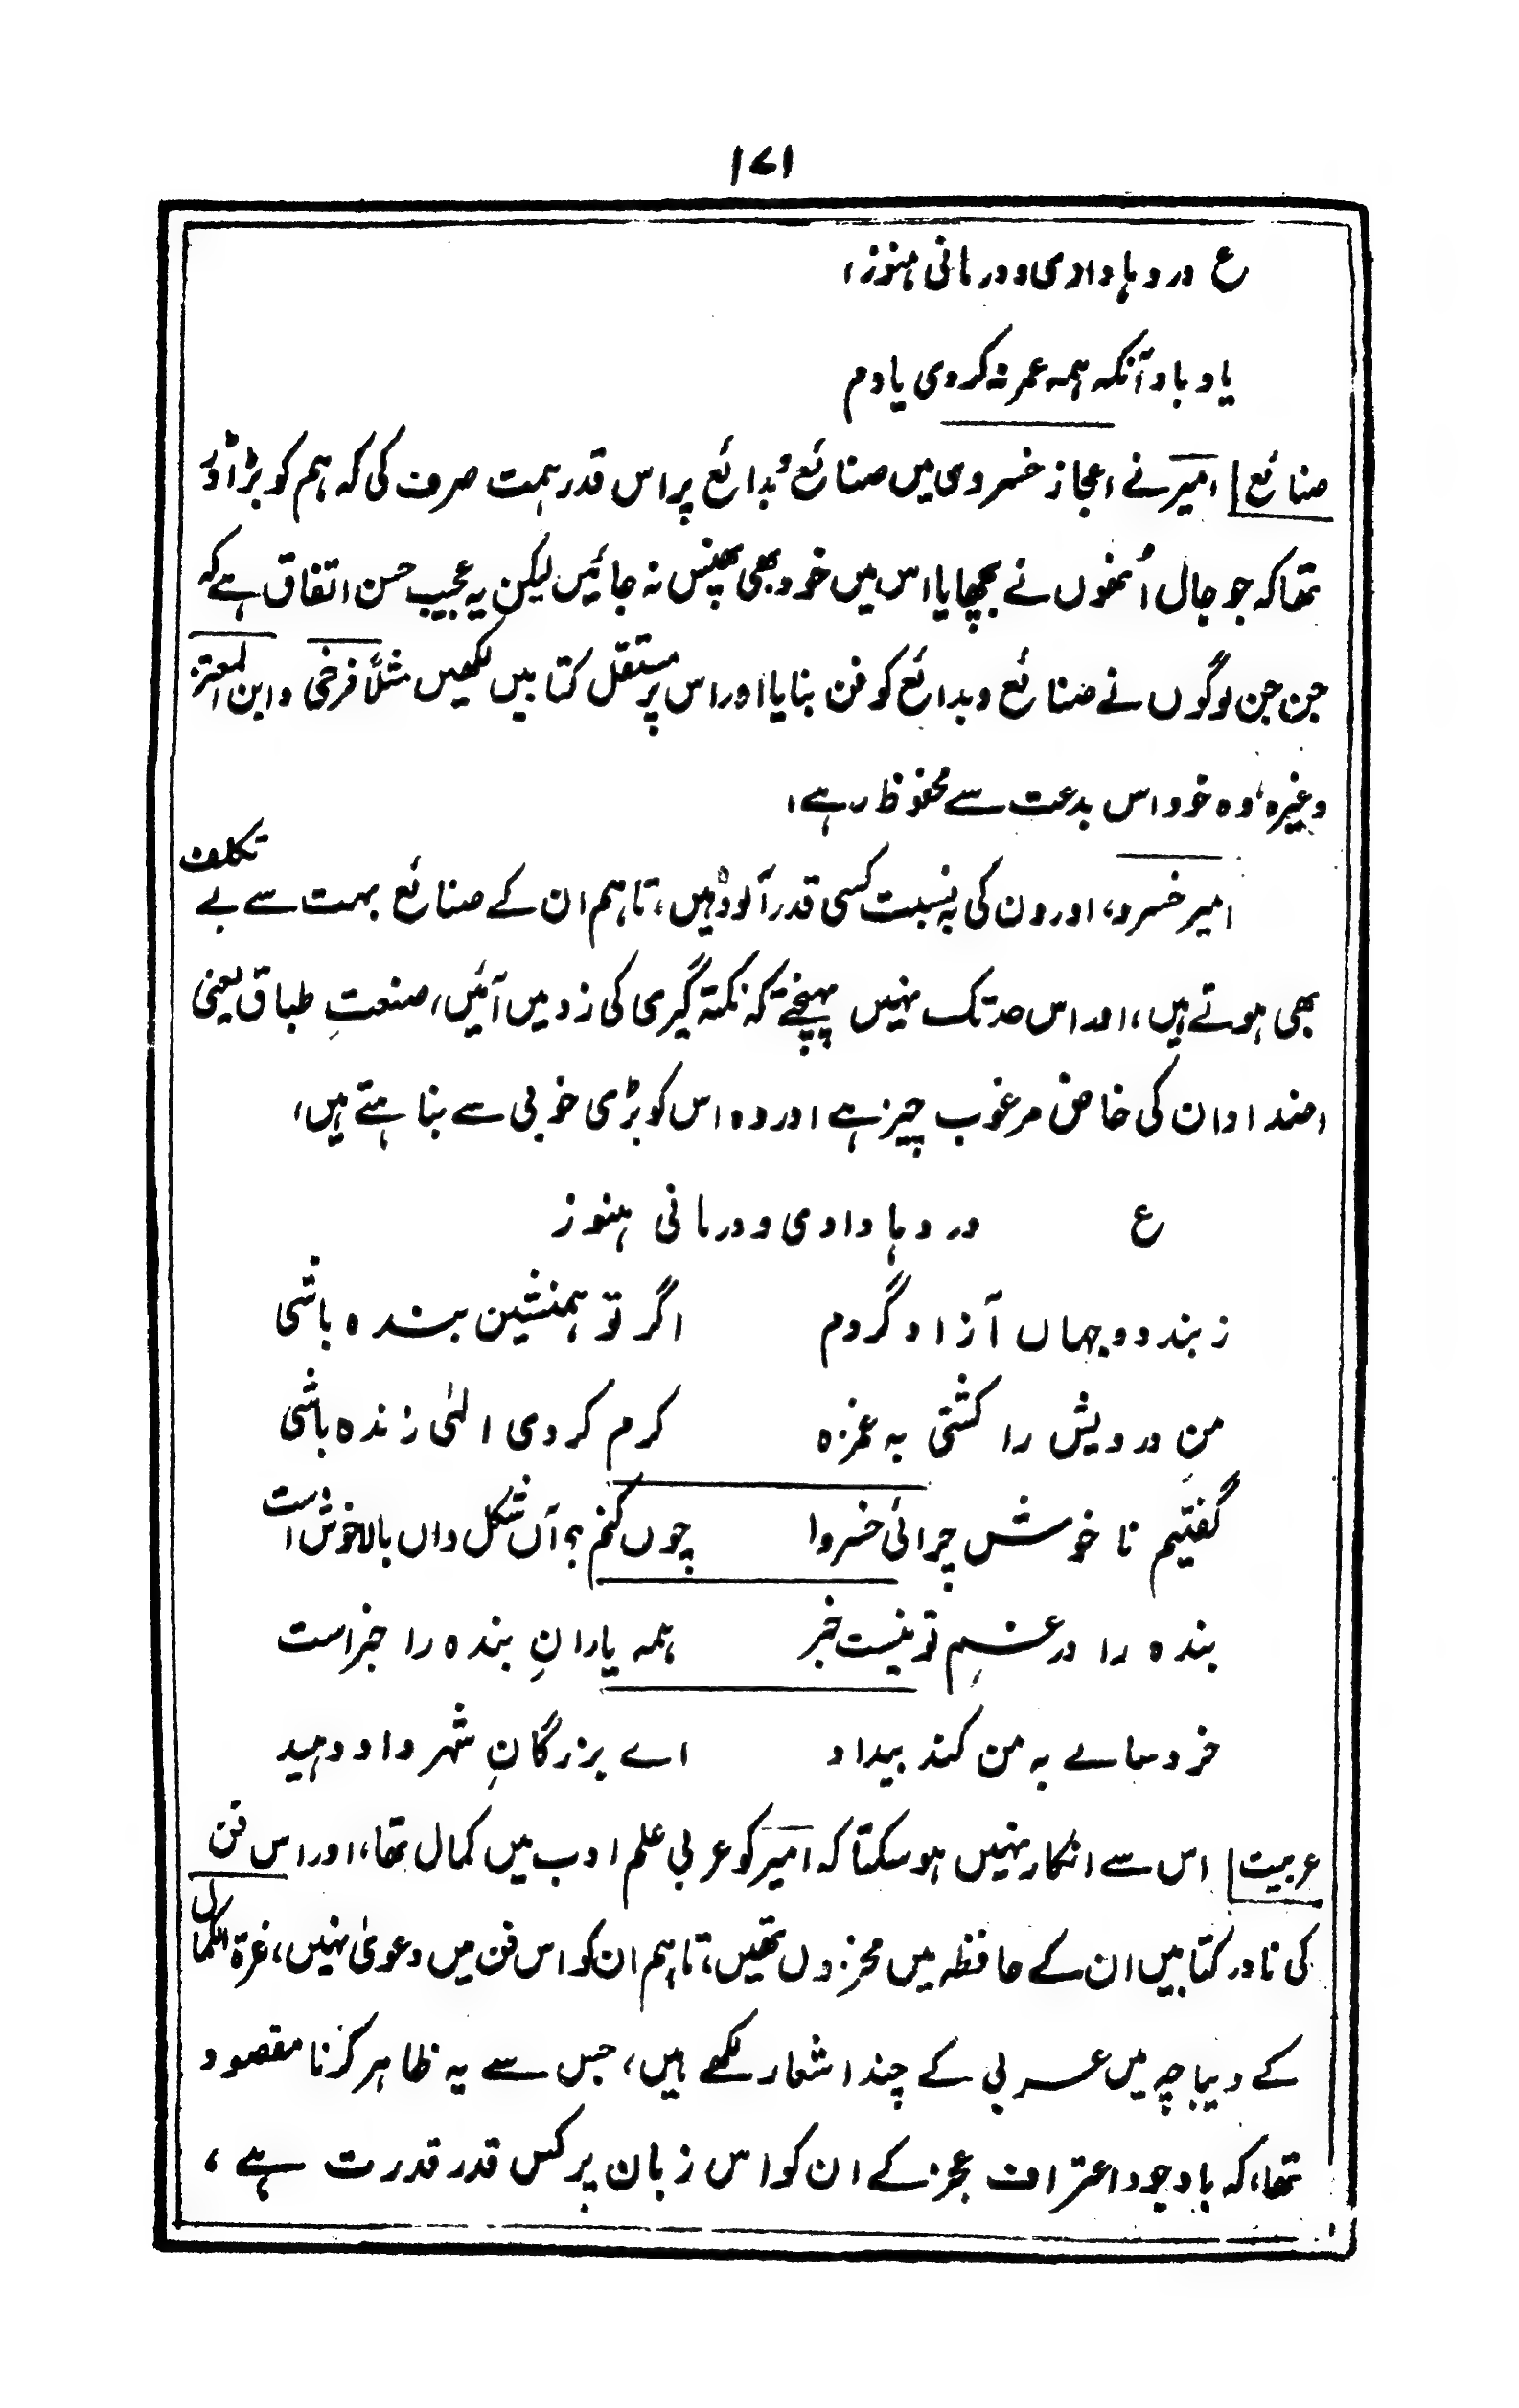 ۱۷۱
ع دردہا دادی و درمانی ہنوز،
یاد باد آنکہ ہمہ عمر نہ کردی یادم
صنائع امیر نے اعجاز خسروی میں صنائع و بدائع پر اس قدر ہمت صرف کی کہ ہم کو بڑا ڈر
تھا کہ جو جال اُنھوں نے بچھایا اس میں خود بھی پھنس نہ جائیں لیکن یہ عجیب حسن اتفاق ہے کہ
جن جن لوگوں نے صنائع و بدائع کو فن بنایا اور اس پر مستقل کتابیں لکھیں مثلاً فرخی و ابن المعتز
وغیرہ، وہ خود اس بدعت سے محفوظ رہے،
امیر خسرو، اورون کی بہ نسبت کسی قدر آلودہ ہیں، تاہم ان کے صنائع بہت سے بے تکلف
بھی ہوتے ہیں، اور اس حد تک نہیں پہنچتے کہ نکتہ گیری کی زد میں آئیں، صنعتِ طباق یعنی
اضداد ان کی خاص مرغوب چیز ہے اور وہ اس کو بڑی خوبی سے بناہتے ہیں،
ع دردہا دادی و درمانی ہنوز
ز بند دو جہاں آزاد گردم اگر تو ہمنشین بندہ باشی
منِ درویش را کشتی بہ غمزہ کرم کردی الٰہی زندہ باشی
گفتیم نا خوش چرائی خسروا چوں کنم؟ آں شکل داں بالا خوش است
بندہ را در غمِ تو نیست خبر ہمہ یارانِ بندہ را خبر است
خرد سالے بہ من کند بیداد اے بزرگانِ شہر داد دہید
عربیت اس سے انکار نہیں ہو سکتا کہ امیر کو عربی علم ادب میں کمال تھا، اور اس فن
کی نادر کتابیں ان کے حافظہ میں مخزوں تھیں، تاہم ان کو اس فن میں دعویٰ نہیں، غرۃ الکمال
کے دیباچہ میں عربی کے چند اشعار لکھے ہیں، جس سے یہ ظاہر کرنا مقصود
تھا، کہ باوجود اعتراف عجز کے ان کو اس زبان پر کس قدر قدرت ہے،